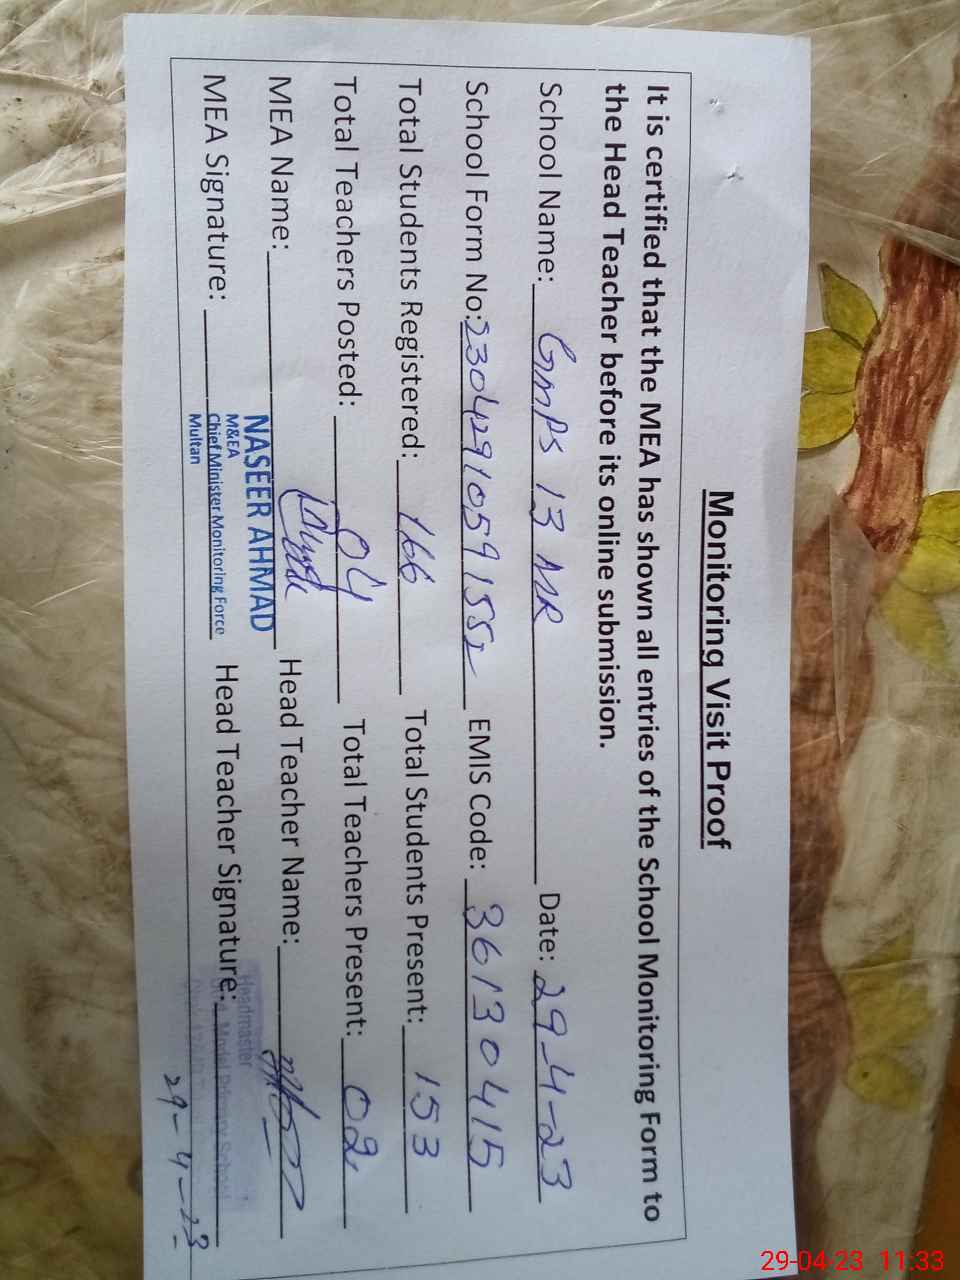 Monitoring Visit Proof
It is certified that the MEA has shown all entries of the School Monitoring Form to
the Head Teacher before its online submission.
School Name: GMPS 13 MR Date: 29-4-23
School Form No: 23042910591552 EMIS Code: 36130415
Total Students Registered: 166 Total Students Present: 153
Total Teachers Posted: 04 Total Teachers Present: 02
MEA Name: Head Teacher Name:
NASEER AHMAD
M&EA
Chief Minister Monitoring Force
Multan
MEA Signature: Head Teacher Signature:
Headmaster
Model Primary School
29-4-23
29-04-23 11:33